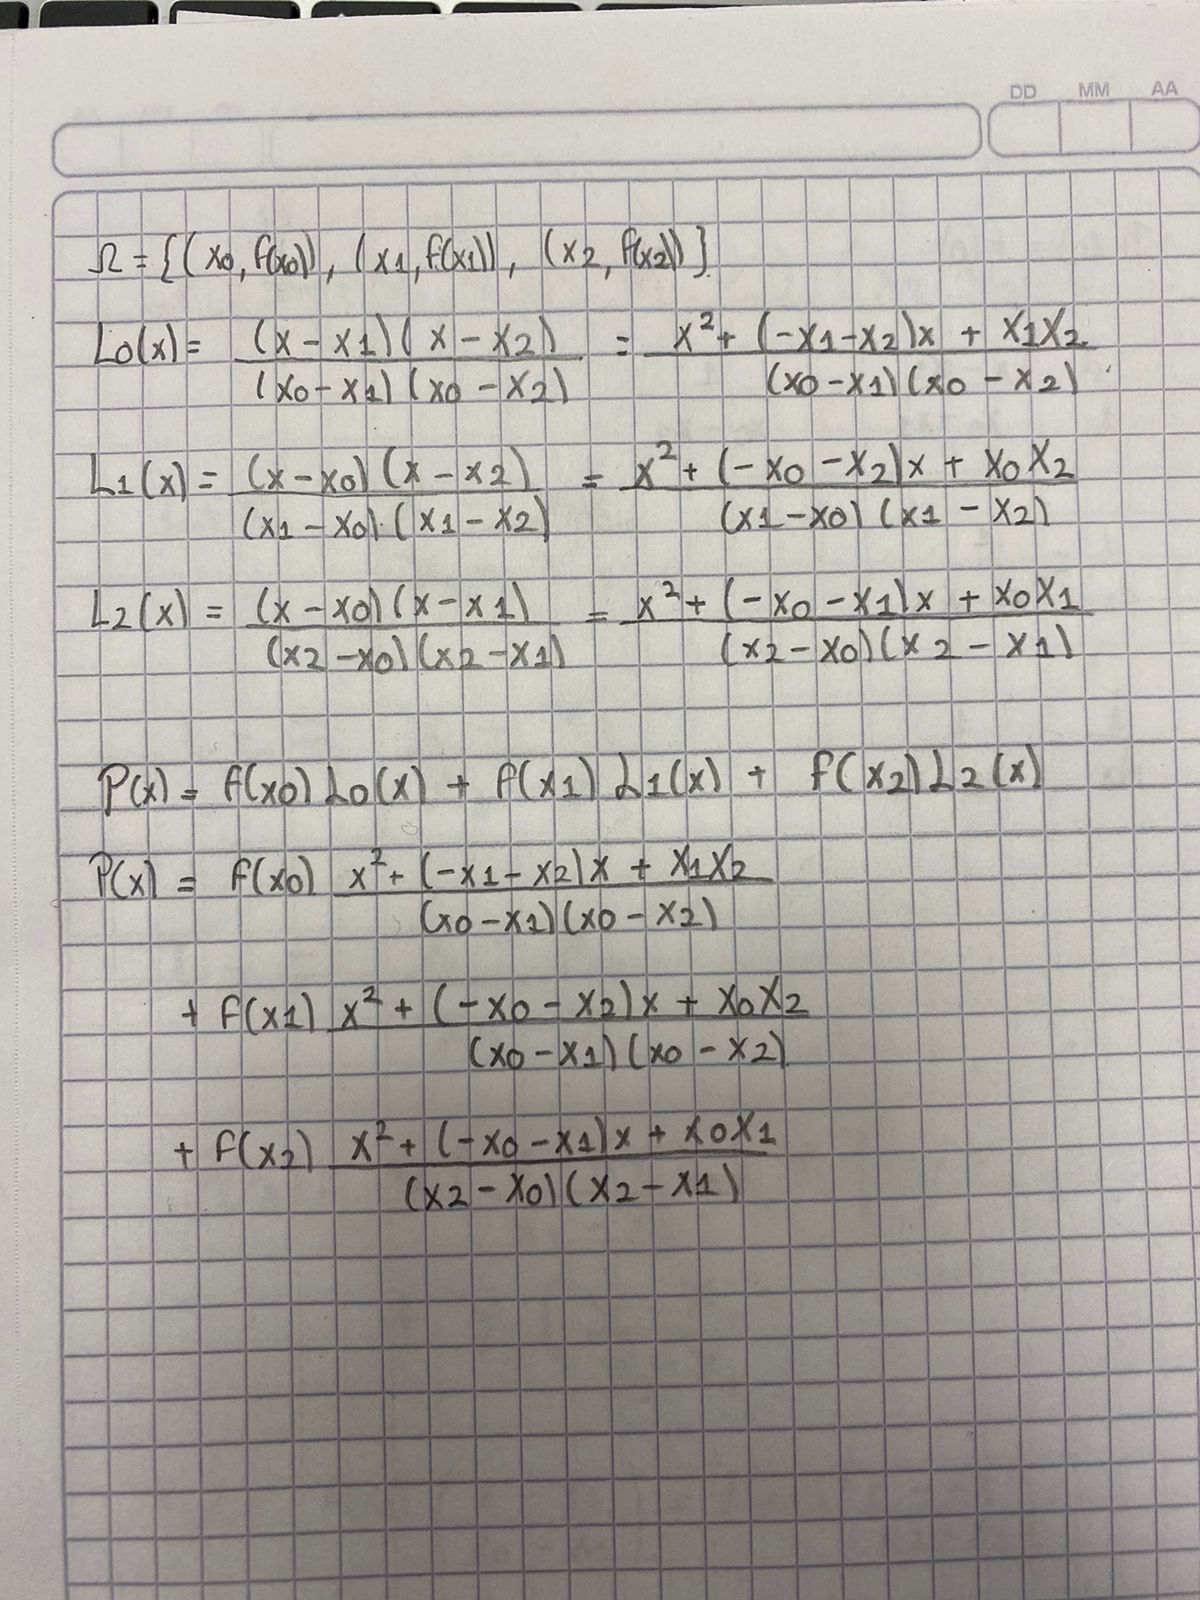 DD MM AA
Ω = {(x0, f(x0)), (x1, f(x1)), (x2, f(x2))}
L0(x) = (x - x1)(x - x2) / (x0 - x1)(x0 - x2) = x² + (-x1 - x2)x + x1x2 / (x0 - x1)(x0 - x2)
L1(x) = (x - x0)(x - x2) / (x1 - x0)(x1 - x2) = x² + (-x0 - x2)x + x0x2 / (x1 - x0)(x1 - x2)
L2(x) = (x - x0)(x - x1) / (x2 - x0)(x2 - x1) = x² + (-x0 - x1)x + x0x1 / (x2 - x0)(x2 - x1)
P(x) = f(x0)L0(x) + f(x1)L1(x) + f(x2)L2(x)
P(x) = f(x0) x² + (-x1 - x2)x + x1x2 / (x0 - x1)(x0 - x2)
+ f(x1) x² + (-x0 - x2)x + x0x2 / (x0 - x1)(x0 - x2)
+ f(x2) x² + (-x0 - x1)x + x0x1 / (x2 - x0)(x2 - x1)